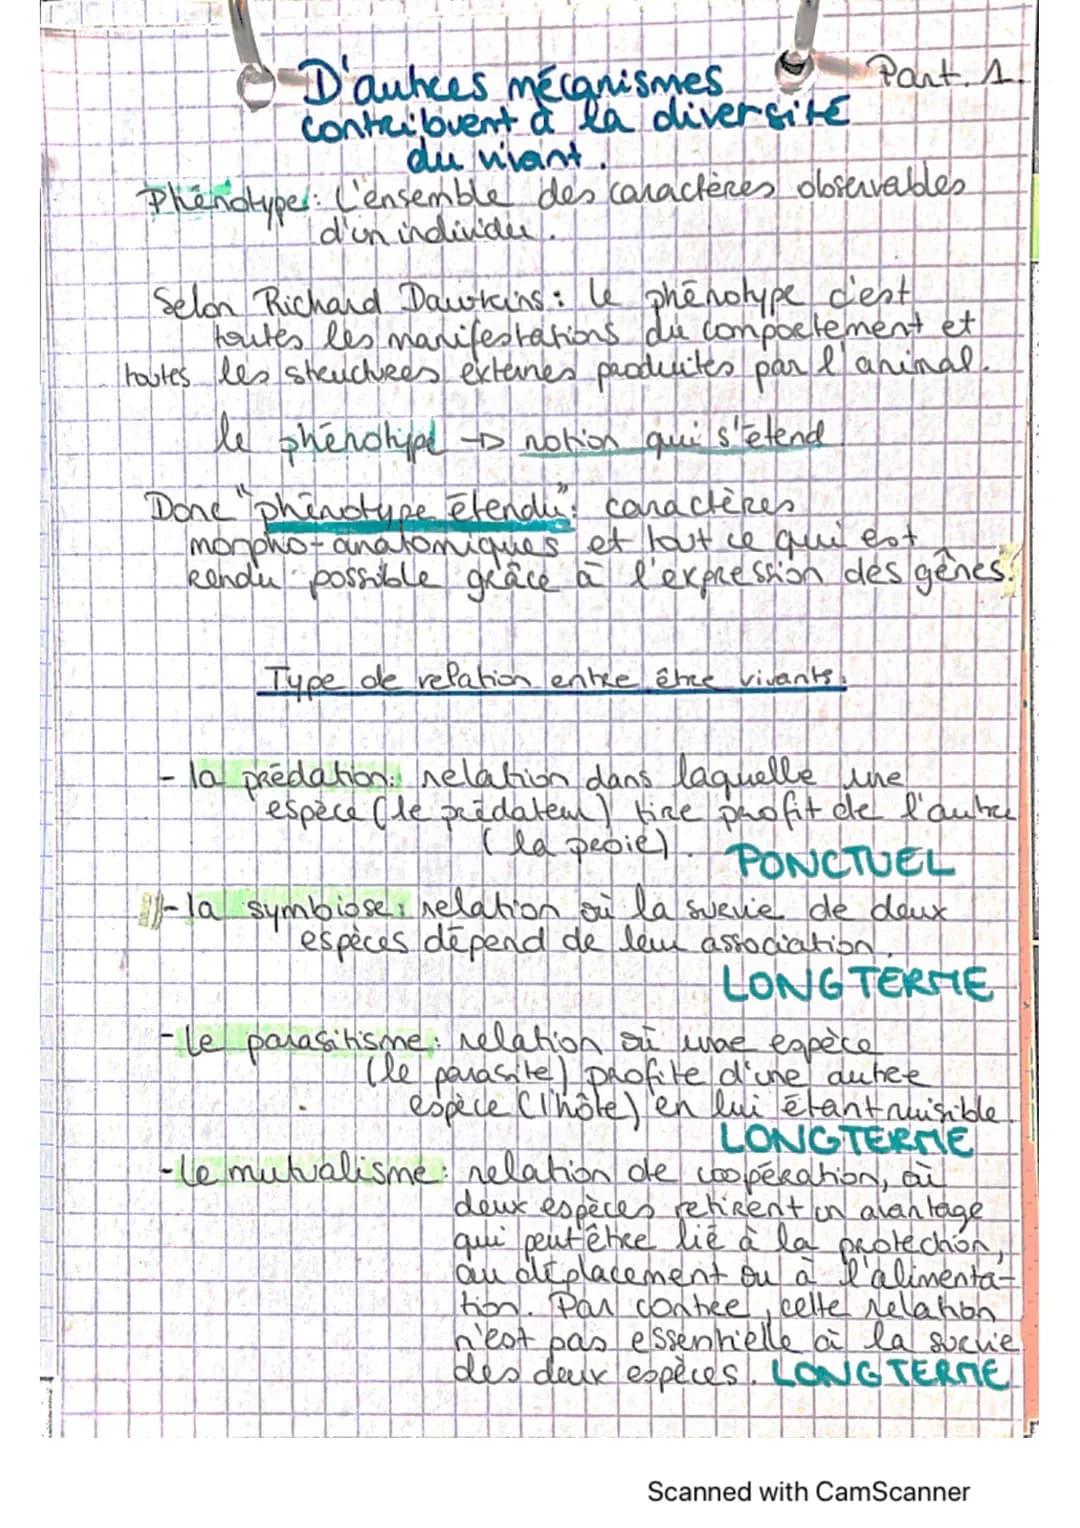 D'autres mécanismes
Part. 1.
contribuent à la diversité
du vivant.
Phénotype: L'ensemble des caractères observables
d'un individu.
Selon Richard Dawkins: le phénotype c'est
toutes les manifestations du comportement et
toutes les structures externes produites par l'animal.
le phénotype → notion qui s'étend
Donc "phénotype étendu": caractères
morpho-anatomiques et tout ce qui est
rendu possible grâce à l'expression des gênes.
Type de relation entre être vivants.
- la prédation: relation dans laquelle une
espèce (le prédateur) tire profit de l'autre
(la proie).
PONCTUEL
- la symbiose: relation où la survie de deux
espèces dépend de leur association.
LONG TERME
- le parasitisme: relation où une espèce
(le parasite) profite d'une autre
espèce (l'hôte) en lui étant nuisible.
LONG TERME
- le mutualisme: relation de coopération, où
deux espèces retirent un avantage
qui peut être lié à la protection,
au déplacement ou à l'alimenta-
tion. Par contre, cette relation
n'est pas essentielle à la survie
des deux espèces. LONG TERME
Scanned with CamScanner